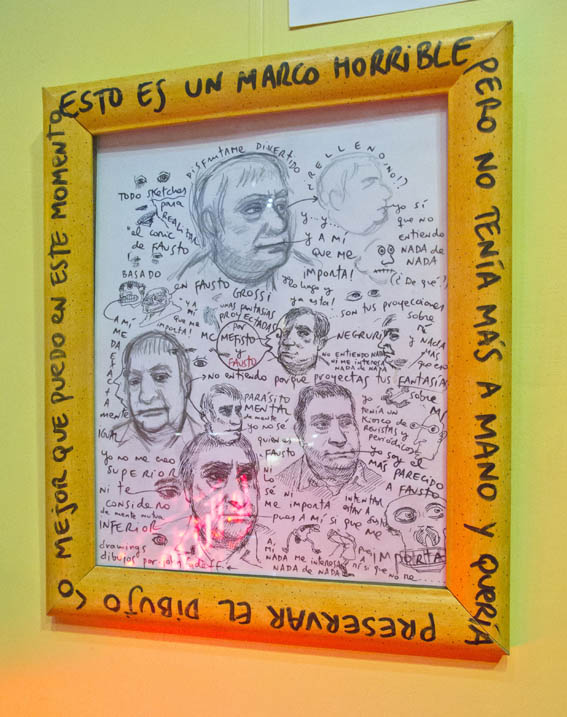 ESTO ES UN MARCO HORRIBLE
PERO NO TENÍA MÁS A MANO Y QUERÍA
PRESERVAR EL DIBUJO
LO MEJOR QUE PUEDO EN ESTE MOMENTO
DISFRUTAME DIVERTIDO
¿RELLENO, NO!?
TODO SKETCHES
PARA
REALIZAR
el comic
de FAUSTO
BASADO
EN FAUSTO
GROSSI
Y... Y...
Y A MÍ
QUE ME
IMPORTA!
YO SÍ
QUE NO
ENTIENDO
NADA DE
NADA
(¿De qué?)
Yo luego y
ya esta!
... SON TUS PROYECCIONES
SOBRE
Y NADA
MAS
Y A
MÍ
QUE ME
IMPORTA!
UNAS FANTASIAS
PROYECTADAS
POR
MEFISTO
Y
FAUSTO
NEGRURI
NO ENTIENDO NADA
NI ME INTERESA
NADA DE NADA
NO entiendo porque proyectas tus FANTASIAS
sobre
A MÍ
ME
DA
IGUAL
PARÁSITO
MENTAL
de mente
yo no sé
quien es
FAUSTO
NI
LO
SÉ NI
ME IMPORTA
pues A MÍ SI que ME
IMPORTA
INTENTAR
yo
TENÍA UN
KIOSCO DE
REVISTAS Y
PERIÓDICOS
yo soy el
MAS PARECIDO
A FAUSTO
yo no me creo
SUPERIOR
Ni te
CONSIDERO
de mente
INFERIOR
drawings
dibujos por
A
MÍ
NADA ME INTERESA
NADA de NADA
ni sí que
no me....